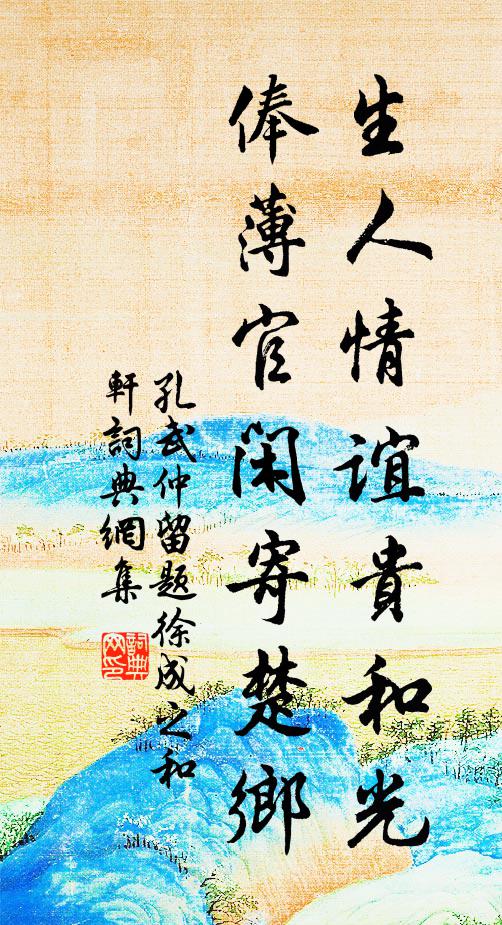 生人情誼貴和光
俸薄官閑寄楚鄉
孔武仲留題徐成之和
軒詞典網集
詞典
网印